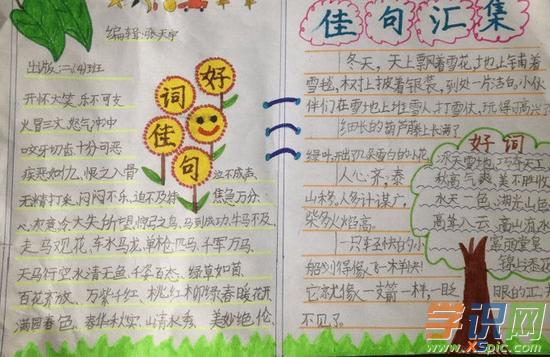 编辑:张天宇
出版:二(4)班
好词佳句
开怀大笑、乐不可支
火冒三丈、怒气冲冲
咬牙切齿十分可恶
疾恶如仇、恨之入骨 泣不成声、
无精打采、闷闷不乐、迫不及待 焦急万分、
心灰意冷、大失所望、惊弓之鸟、马到成功、牛马不及、
走马观花、车水马龙、单枪匹马、千军万马、
天马行空水清无鱼、千姿百态、绿草如茵、
百花齐放、万紫千红、桃红柳绿、春暖花开、
满园春色、春华秋实、山清水秀、美妙绝伦、
佳句汇集
冬天,天上飘着雪花,地上铺着
雪毯,树上披着银装,到处一片洁白。小伙
伴们在雪地上堆雪人,打雪仗,玩得高兴
细长的葫芦藤上长满了
绿叶,
人心齐,泰
山移。人多计谋广,
柴多火焰高。
一只轻快的小
船划得像
它就像一支箭一样,一眨眼的工
不见了。
好词
冰天雪地、巧夺天工、
秋高气爽、美不胜收
水天一色、湖光山色
高耸入云、高山流水
富丽堂皇
锦上添花
学识网
www.XSpic.com